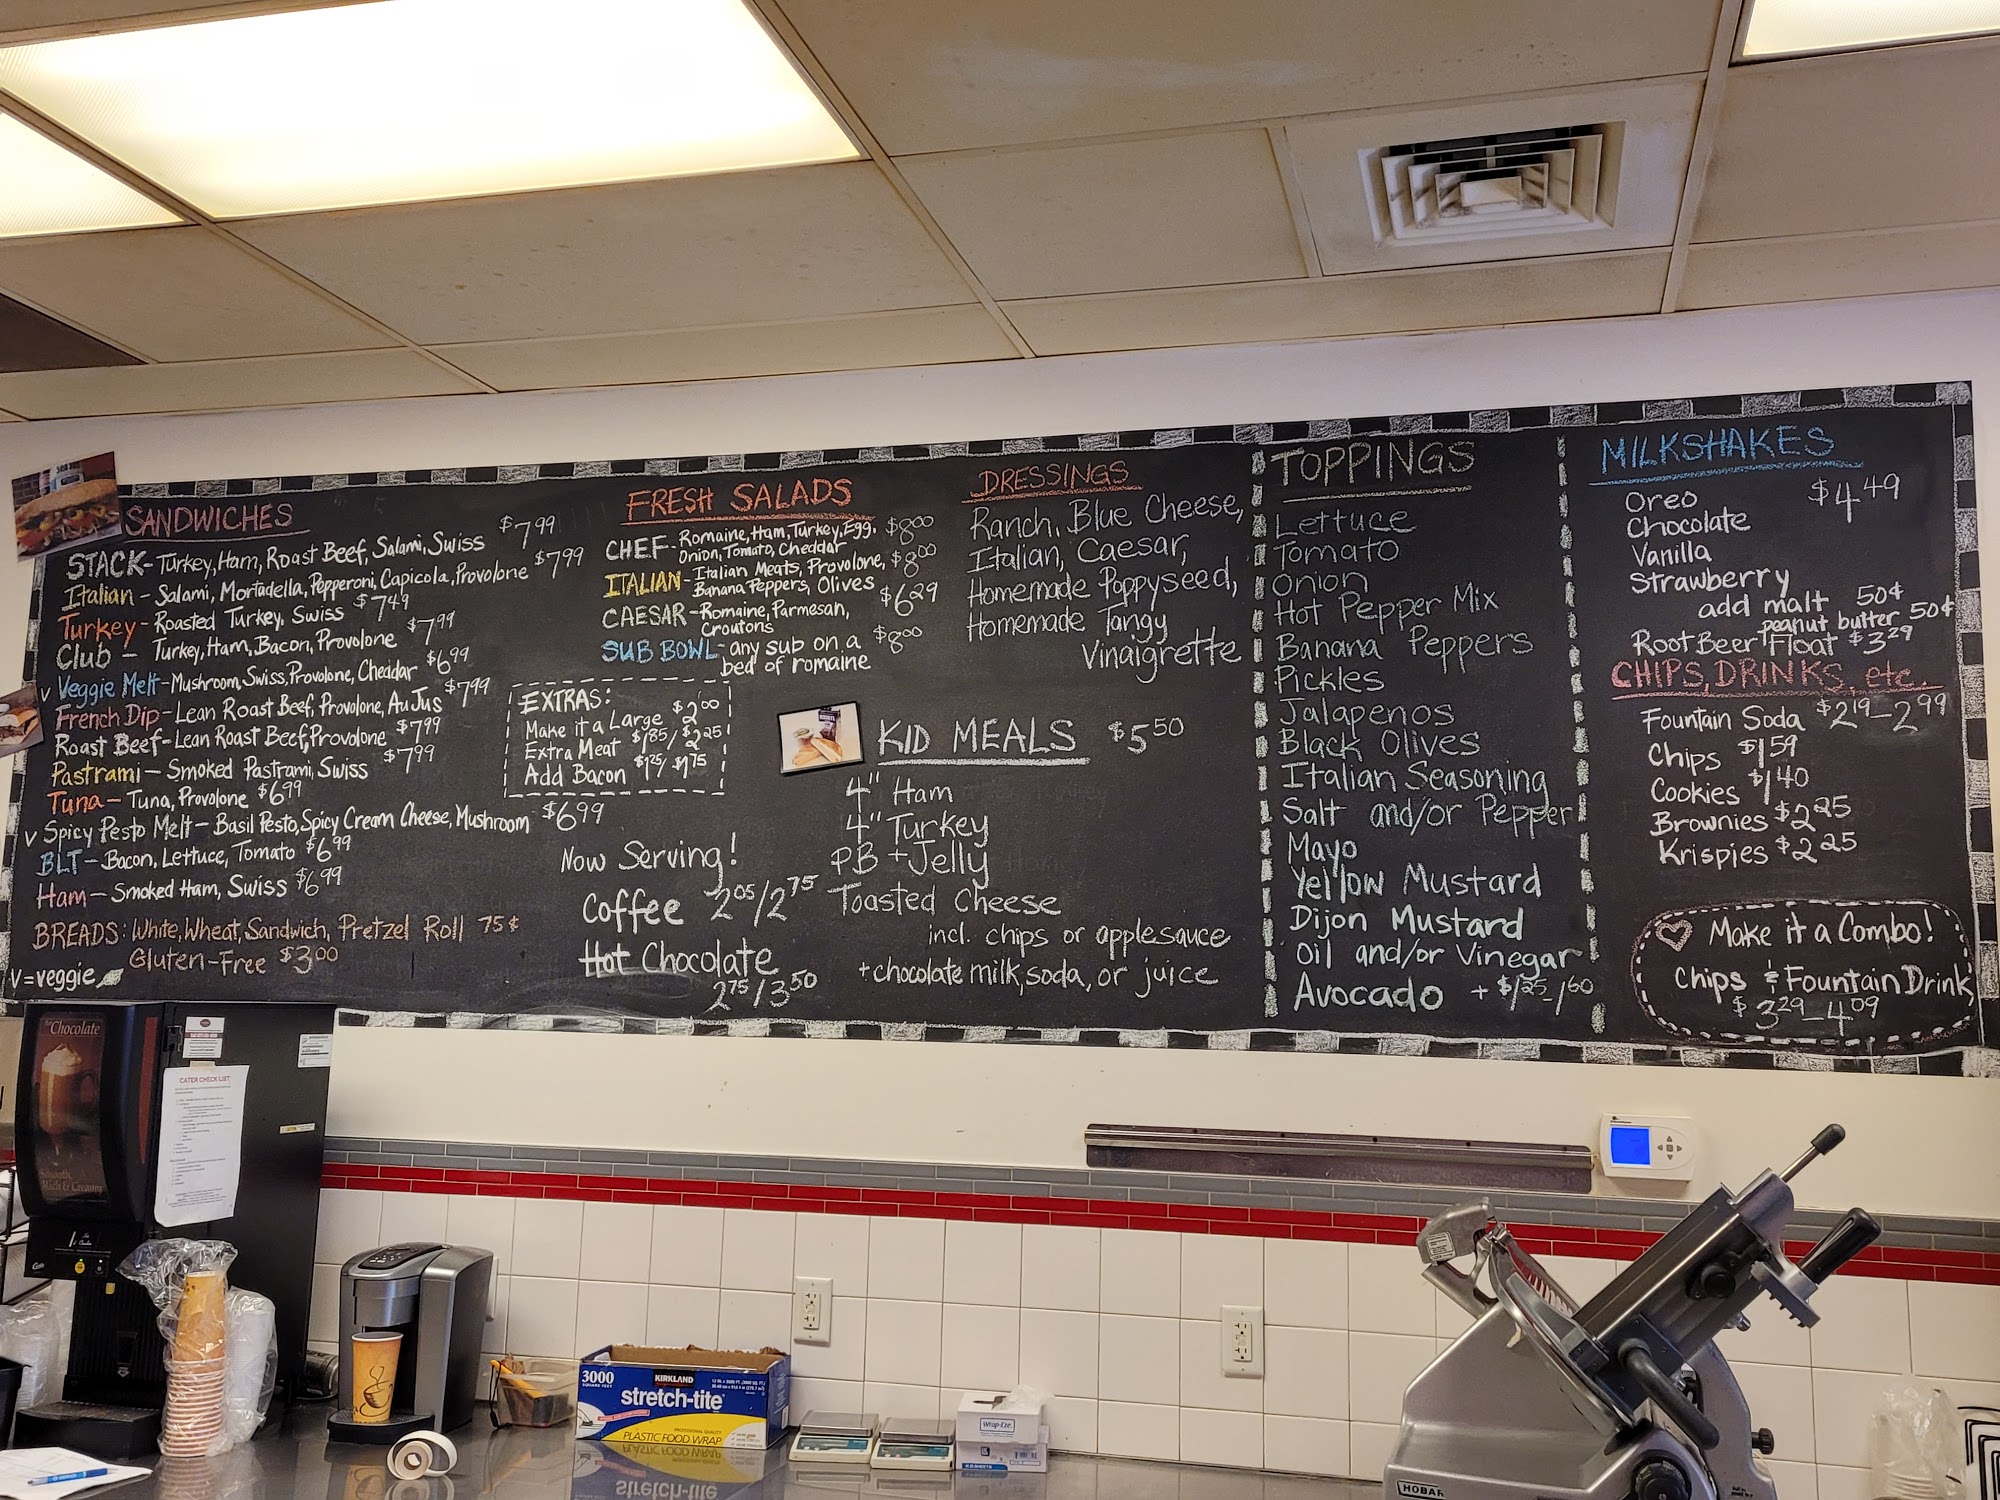 SANDWICHES
STACK- Turkey, Ham, Roast Beef, Salami, Swiss $7.99
Italian - Salami, Mortadella, Pepperoni, Capicola, Provolone $7.99
Turkey - Roasted Turkey, Swiss $7.49
Club - Turkey, Ham, Bacon, Provolone $7.99
v Veggie Melt - Mushroom, Swiss, Provolone, Cheddar $6.99
French Dip - Lean Roast Beef, Provolone, Au Jus $7.99
Roast Beef - Lean Roast Beef, Provolone $7.99
Pastrami - Smoked Pastrami, Swiss $7.99
Tuna - Tuna, Provolone $6.99
v Spicy Pesto Melt - Basil Pesto, Spicy Cream Cheese, Mushroom $6.99
BLT - Bacon, Lettuce, Tomato $6.99
Ham - Smoked Ham, Swiss $6.99
BREADS: White, Wheat, Sandwich, Pretzel Roll 75¢
Gluten-Free $3.00
V=veggie
FRESH SALADS
CHEF - Romaine, Ham, Turkey, Egg, $8.00
Onion, Tomato, Cheddar
ITALIAN - Italian Meats, Provolone, $8.00
Banana Peppers, Olives
CAESAR - Romaine, Parmesan, $6.29
Croutons
SUB BOWL - any sub on a $8.00
bed of romaine
EXTRAS:
Make it a Large $2.00
Extra Meat $1.85/$2.25
Add Bacon $1.25/$1.75
Now Serving!
Coffee 2.05/2.75
Hot Chocolate
2.75/3.50
DRESSINGS
Ranch, Blue Cheese,
Italian, Caesar,
Homemade Poppyseed,
Homemade Tangy
Vinaigrette
KID MEALS $5.50
4" Ham
4" Turkey
PB + Jelly
Toasted Cheese
incl. chips or applesauce
+ chocolate milk, soda, or juice
TOPPINGS
Lettuce
Tomato
Onion
Hot Pepper Mix
Banana Peppers
Pickles
Jalapenos
Black Olives
Italian Seasoning
Salt and/or Pepper
Mayo
Yellow Mustard
Dijon Mustard
Oil and/or Vinegar
Avocado + $1.25-1.60
MILKSHAKES
Oreo $4.49
Chocolate
Vanilla
Strawberry
add malt 50¢
peanut butter 50¢
Root Beer Float $3.29
CHIPS, DRINKS, etc.
Fountain Soda $2.19-2.99
Chips $1.59
Cookies $1.40
Brownies $2.25
Krispies $2.25
Make it a Combo!
Chips & Fountain Drink
$3.29-4.09
Chocolate
Rich & Creamy
CATER CHECK LIST
3000
SQUARE FEET
KIRKLAND
stretch-tite
PROFESSIONAL QUALITY
PLASTIC FOOD WRAP
Wrap-Eze
HOBART